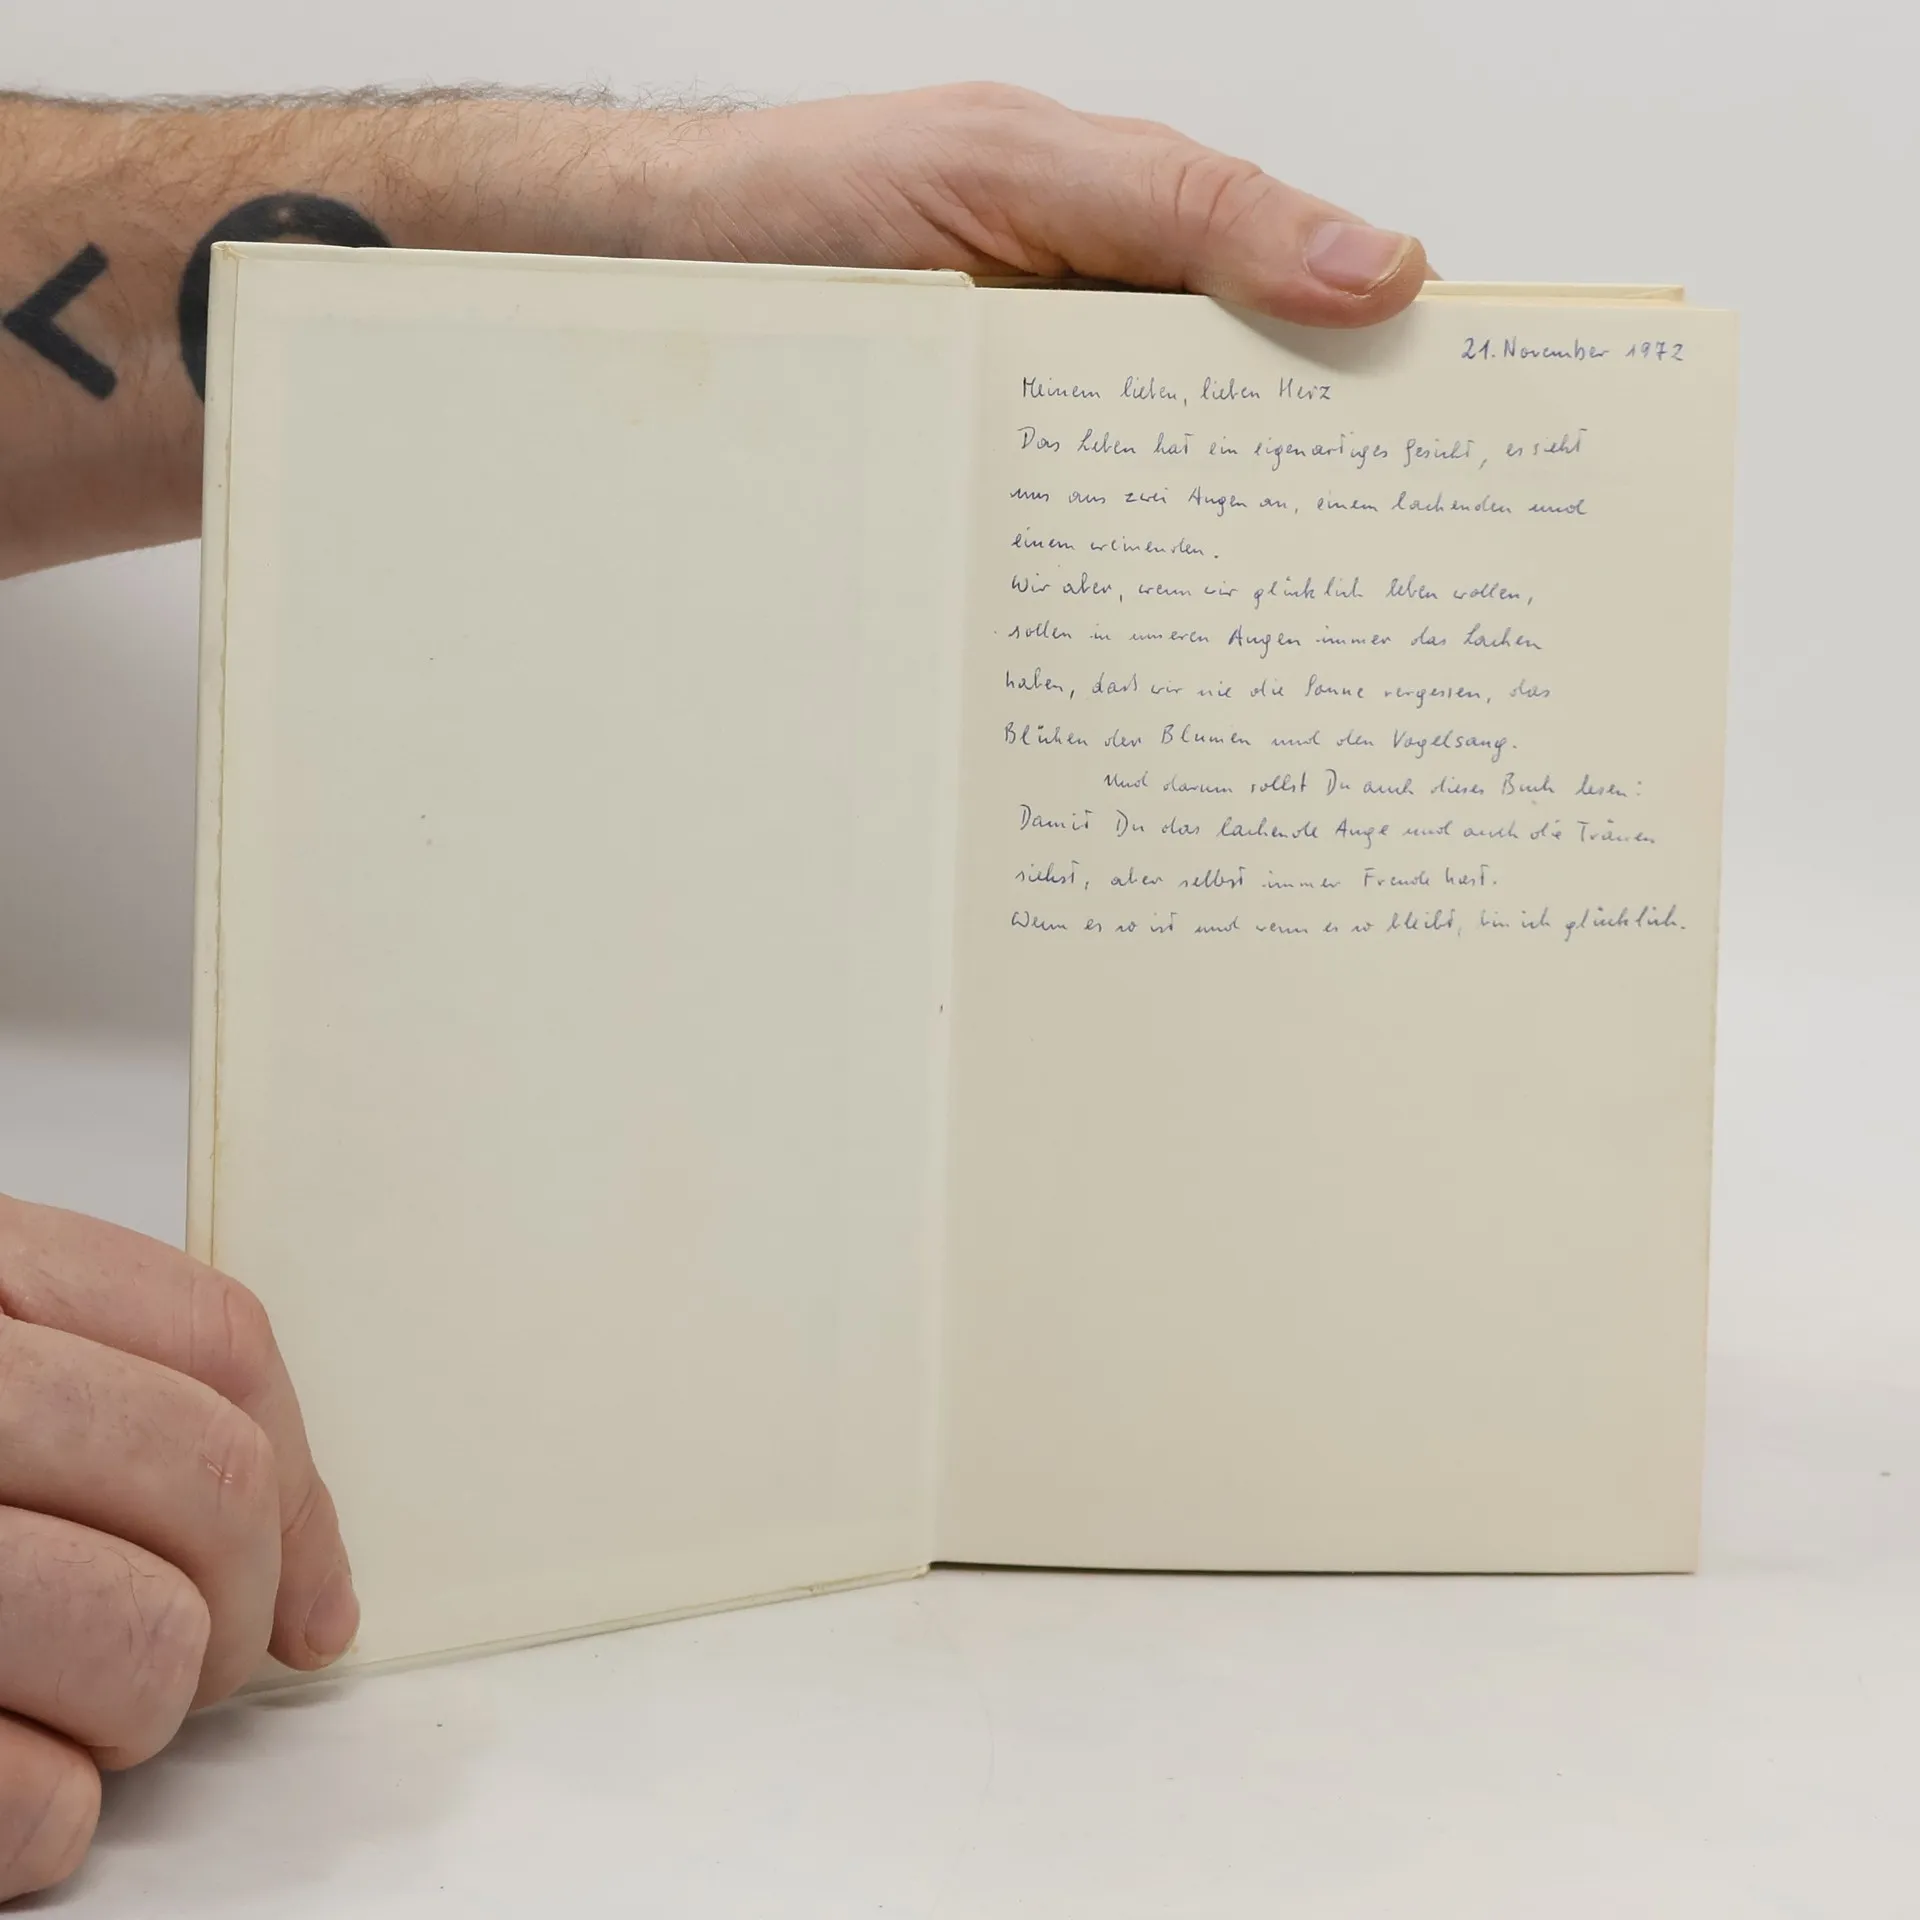 21. November 1972
Meinem lieben, lieben Herz
Das Leben hat ein eigenartiges Gesicht, es sieht
uns aus zwei Augen an, einem lachenden und
einem weinenden.
Wir aber, wenn wir glücklich leben wollen,
sollen in unseren Augen immer das Lachen
haben, daß wir nie die Sonne vergessen, das
Blühen der Blumen und den Vogelsang.
Und darum sollst Du auch dieses Buch lesen:
Damit Du das lachende Auge und auch die Tränen
siehst, aber selbst immer Freude hast.
Wenn es so ist und wenn es so bleibt, bin ich glücklich.